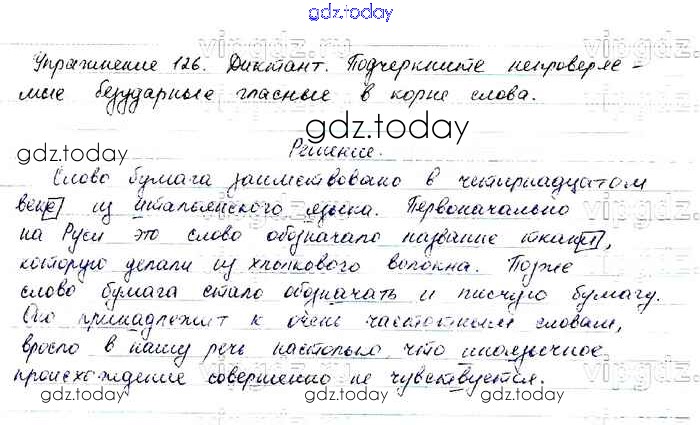 gdz.today
Упражнение 126. Диктант. Подчеркните непроверяе-
мые безударные гласные в корне слова.
gdz.today
Решение.
gdz.today
Слово бумага заимствовано в четырнадцатом
веке из итальянского языка. Первоначально
на Руси это слово обозначало название ткани,
которую делали из хлопкового волокна. Позже
слово бумага стало обозначать и писчую бумагу.
Оно принадлежит к очень частотным словам,
вросло в нашу речь настолько, что иноязычное
происхождение совершенно не чувствуется.
gdz.today
gdz.today
gdz.today
vipgdz.
vipgdz.
vipgdz.